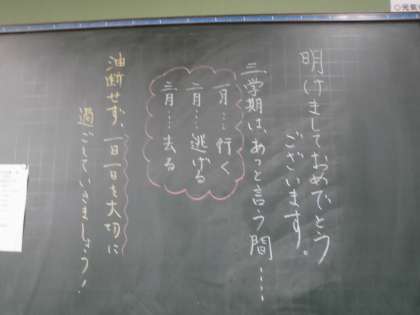 明けましておめでとう
ございます。
三学期は、あっと言う間……
一月…行く
二月…逃げる
三月…去る
油断せず、一日一日を大切に
過ごしていきましょう!